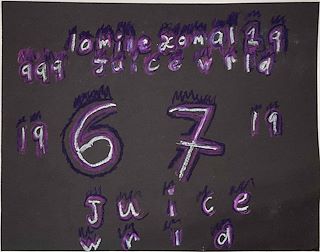 lomilexomal29
999 Juice wrld
19 6 7 19
Juice
wrld